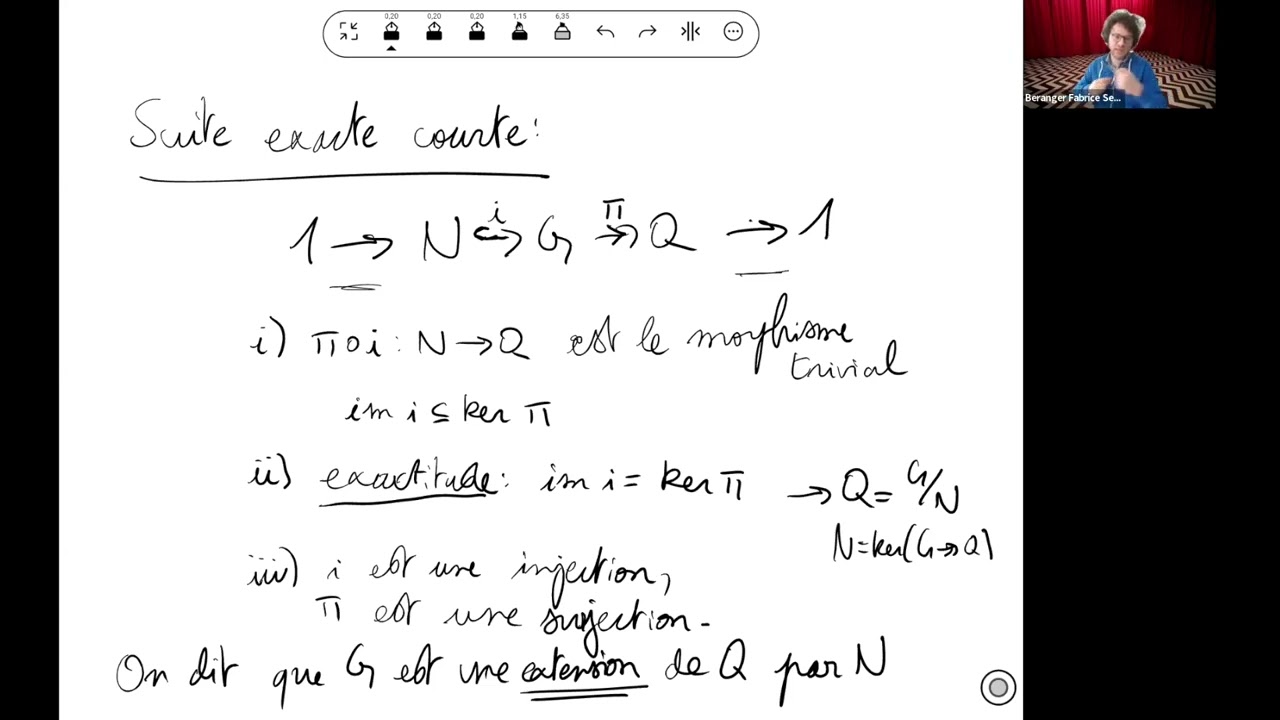 0,20 0,20 0,20 1,15 6,35
Beranger Fabrice Se...
Suite exacte courte:
1 → N ↪ G ↠ Q → 1
i π
i) π∘i : N → Q est le morphisme
trivial
im i ⊆ ker π
ii) exactitude: im i = ker π → Q = G/N
N = ker(G ↠ Q)
iii) i est une injection,
π est une surjection.
On dit que G est une extension de Q par N